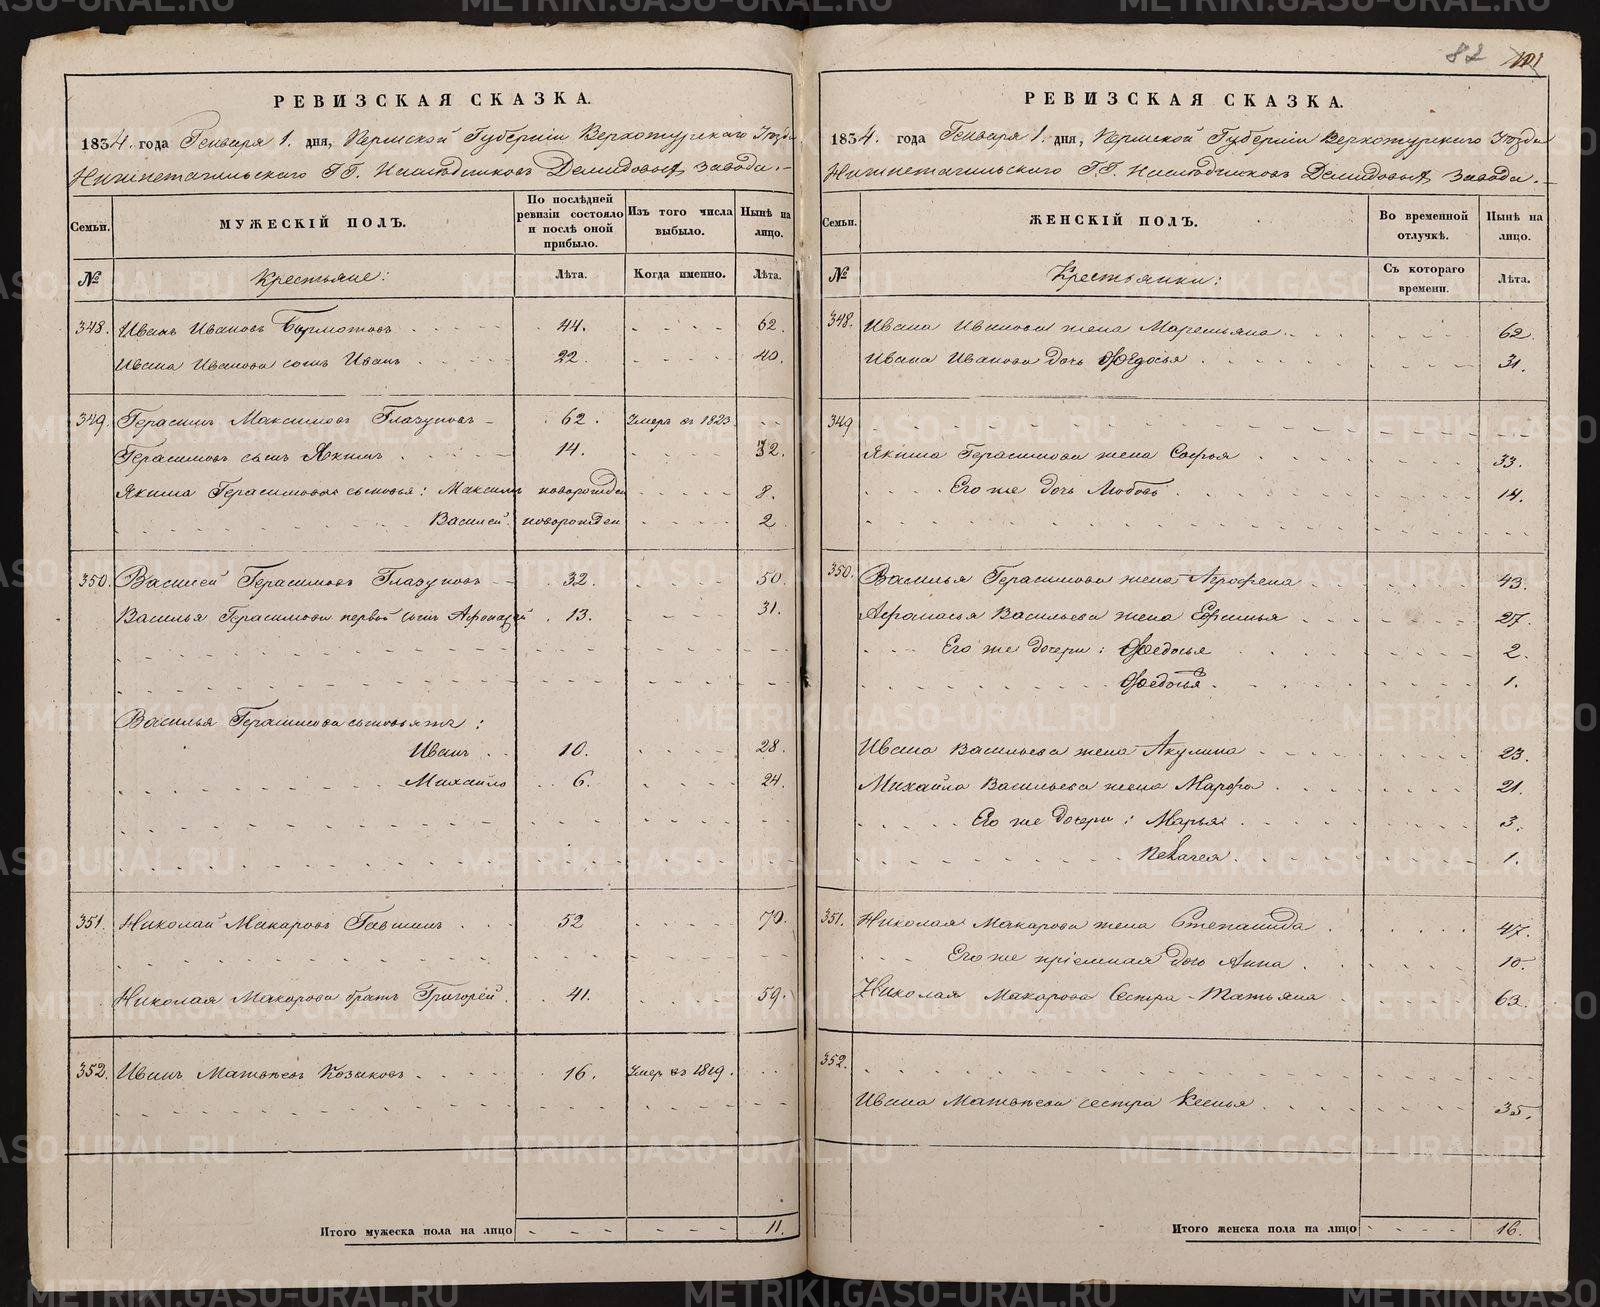 82 101
РЕВИЗСКАЯ СКАЗКА.
1834. года Генваря 1. дня, Пермской Губерніи Верхотурскаго Уѣзда
Нижнетагильскаго ГГ. Наслѣдниковъ Демидовыхъ завода.
Семьи. МУЖЕСКІЙ ПОЛЪ. По послѣдней ревизіи состояло и послѣ оной прибыло. Изъ того числа выбыло. Нынѣ на лицо.
№ Крестьяне: Лѣта. Когда именно. Лѣта.
348. Иванъ Ивановъ Бурмотовъ 44. 62.
Ивана Иванова сынъ Иванъ 22. 40.
349. Герасимъ Максимовъ Глазуновъ 62. Умеръ въ 1823
Герасимовъ сынъ Якимъ 14. 32.
Якима Герасимова сыновья: Максимъ новорожден 8.
Василей новорожден 2
350. Василей Герасимовъ Глазуновъ 32. 50.
Василья Герасимова первой сынъ Афонасей 13. 31.
Василья Герасимова сыновья жъ:
Иванъ 10. 28.
Михайло 6. 24.
351. Николай Макаровъ Гавшинъ 52 70.
Николая Макарова братъ Григорей 41. 59.
352. Иванъ Матвѣевъ Козаковъ 16. Умеръ въ 1819.
Итого мужеска пола на лицо 11.
РЕВИЗСКАЯ СКАЗКА.
1834. года Генваря 1. дня, Пермской Губерніи Верхотурскаго Уѣзда
Нижнетагильскаго ГГ. Наслѣдниковъ Демидовыхъ завода.
Семьи. ЖЕНСКІЙ ПОЛЪ. Во временной отлучкѣ. Нынѣ на лицо.
№ Крестьянки: Съ котораго времени. Лѣта.
348. Ивана Иванова жена Маремьяна 62.
Ивана Иванова дочь Федосья 31.
349
Якима Герасимова жена Софья 33.
Его же дочь Любовь 14.
350. Василья Герасимова жена Агрофена 43.
Афонасья Васильева жена Ефимья 27.
Его же дочери: Федосья 2.
Федосья 1.
Ивана Васильева жена Акулина 23.
Михайла Васильева жена Марфа 21.
Его же дочери: Марья 3.
Пелагея 1.
351. Николая Макарова жена Степанида 47.
Его же пріемная дочь Анна 10.
Николая Макарова сестра Татьяна 63.
352.
Ивана Матвѣева сестра Ксенья 35.
Итого женска пола на лицо 16.
METRIKI.GASO-URAL.RU